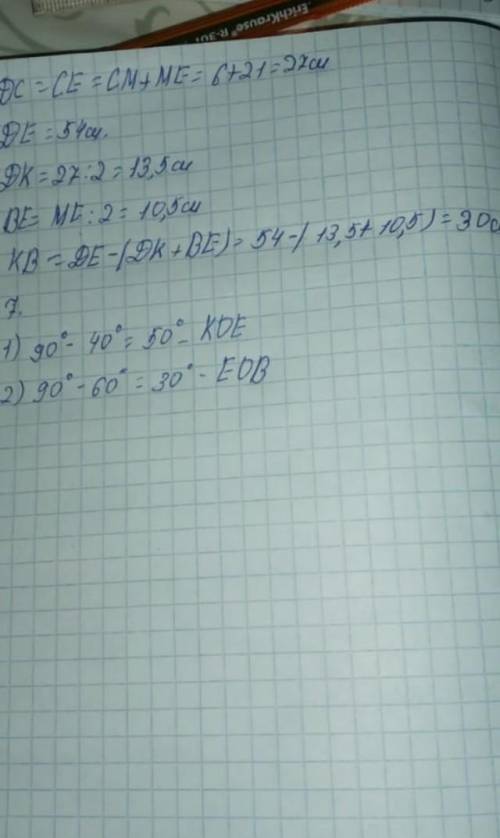 ErichKrause® R-301
DC = CE = CM + ME = 6+21 = 27см
DE = 54см.
DK = 27:2 = 13,5см
BE = ME:2 = 10,5см
KB = DE-(DK+BE) = 54-(13,5+10,5) = 30с
7.
1) 90°- 40° = 50° - KOE
2) 90° - 60° = 30° - EOB